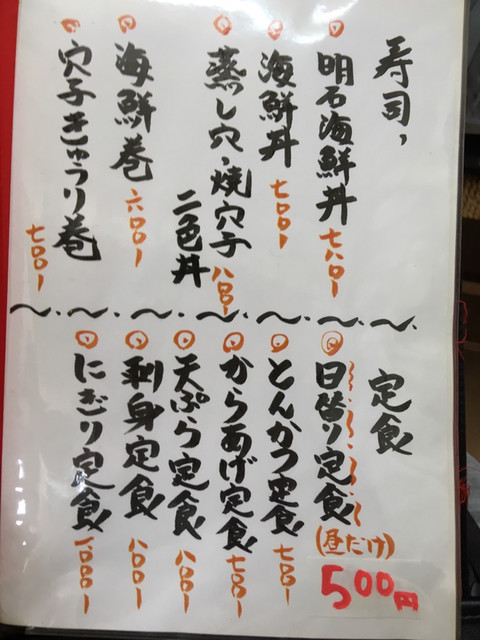 寿司、
明石海鮮丼 七八〇ー
海鮮丼 七〇〇ー
蒸し穴・焼穴子
二色丼 八〇〇ー
海鮮巻 六〇〇ー
穴子きゅうり巻 七〇〇ー
定食
日替り定食 (昼だけ) 500円
とんかつ定食 七〇〇ー
からあげ定食 七〇〇ー
天ぷら定食 八〇〇ー
刺身定食 八〇〇ー
にぎり定食 一〇〇〇ー